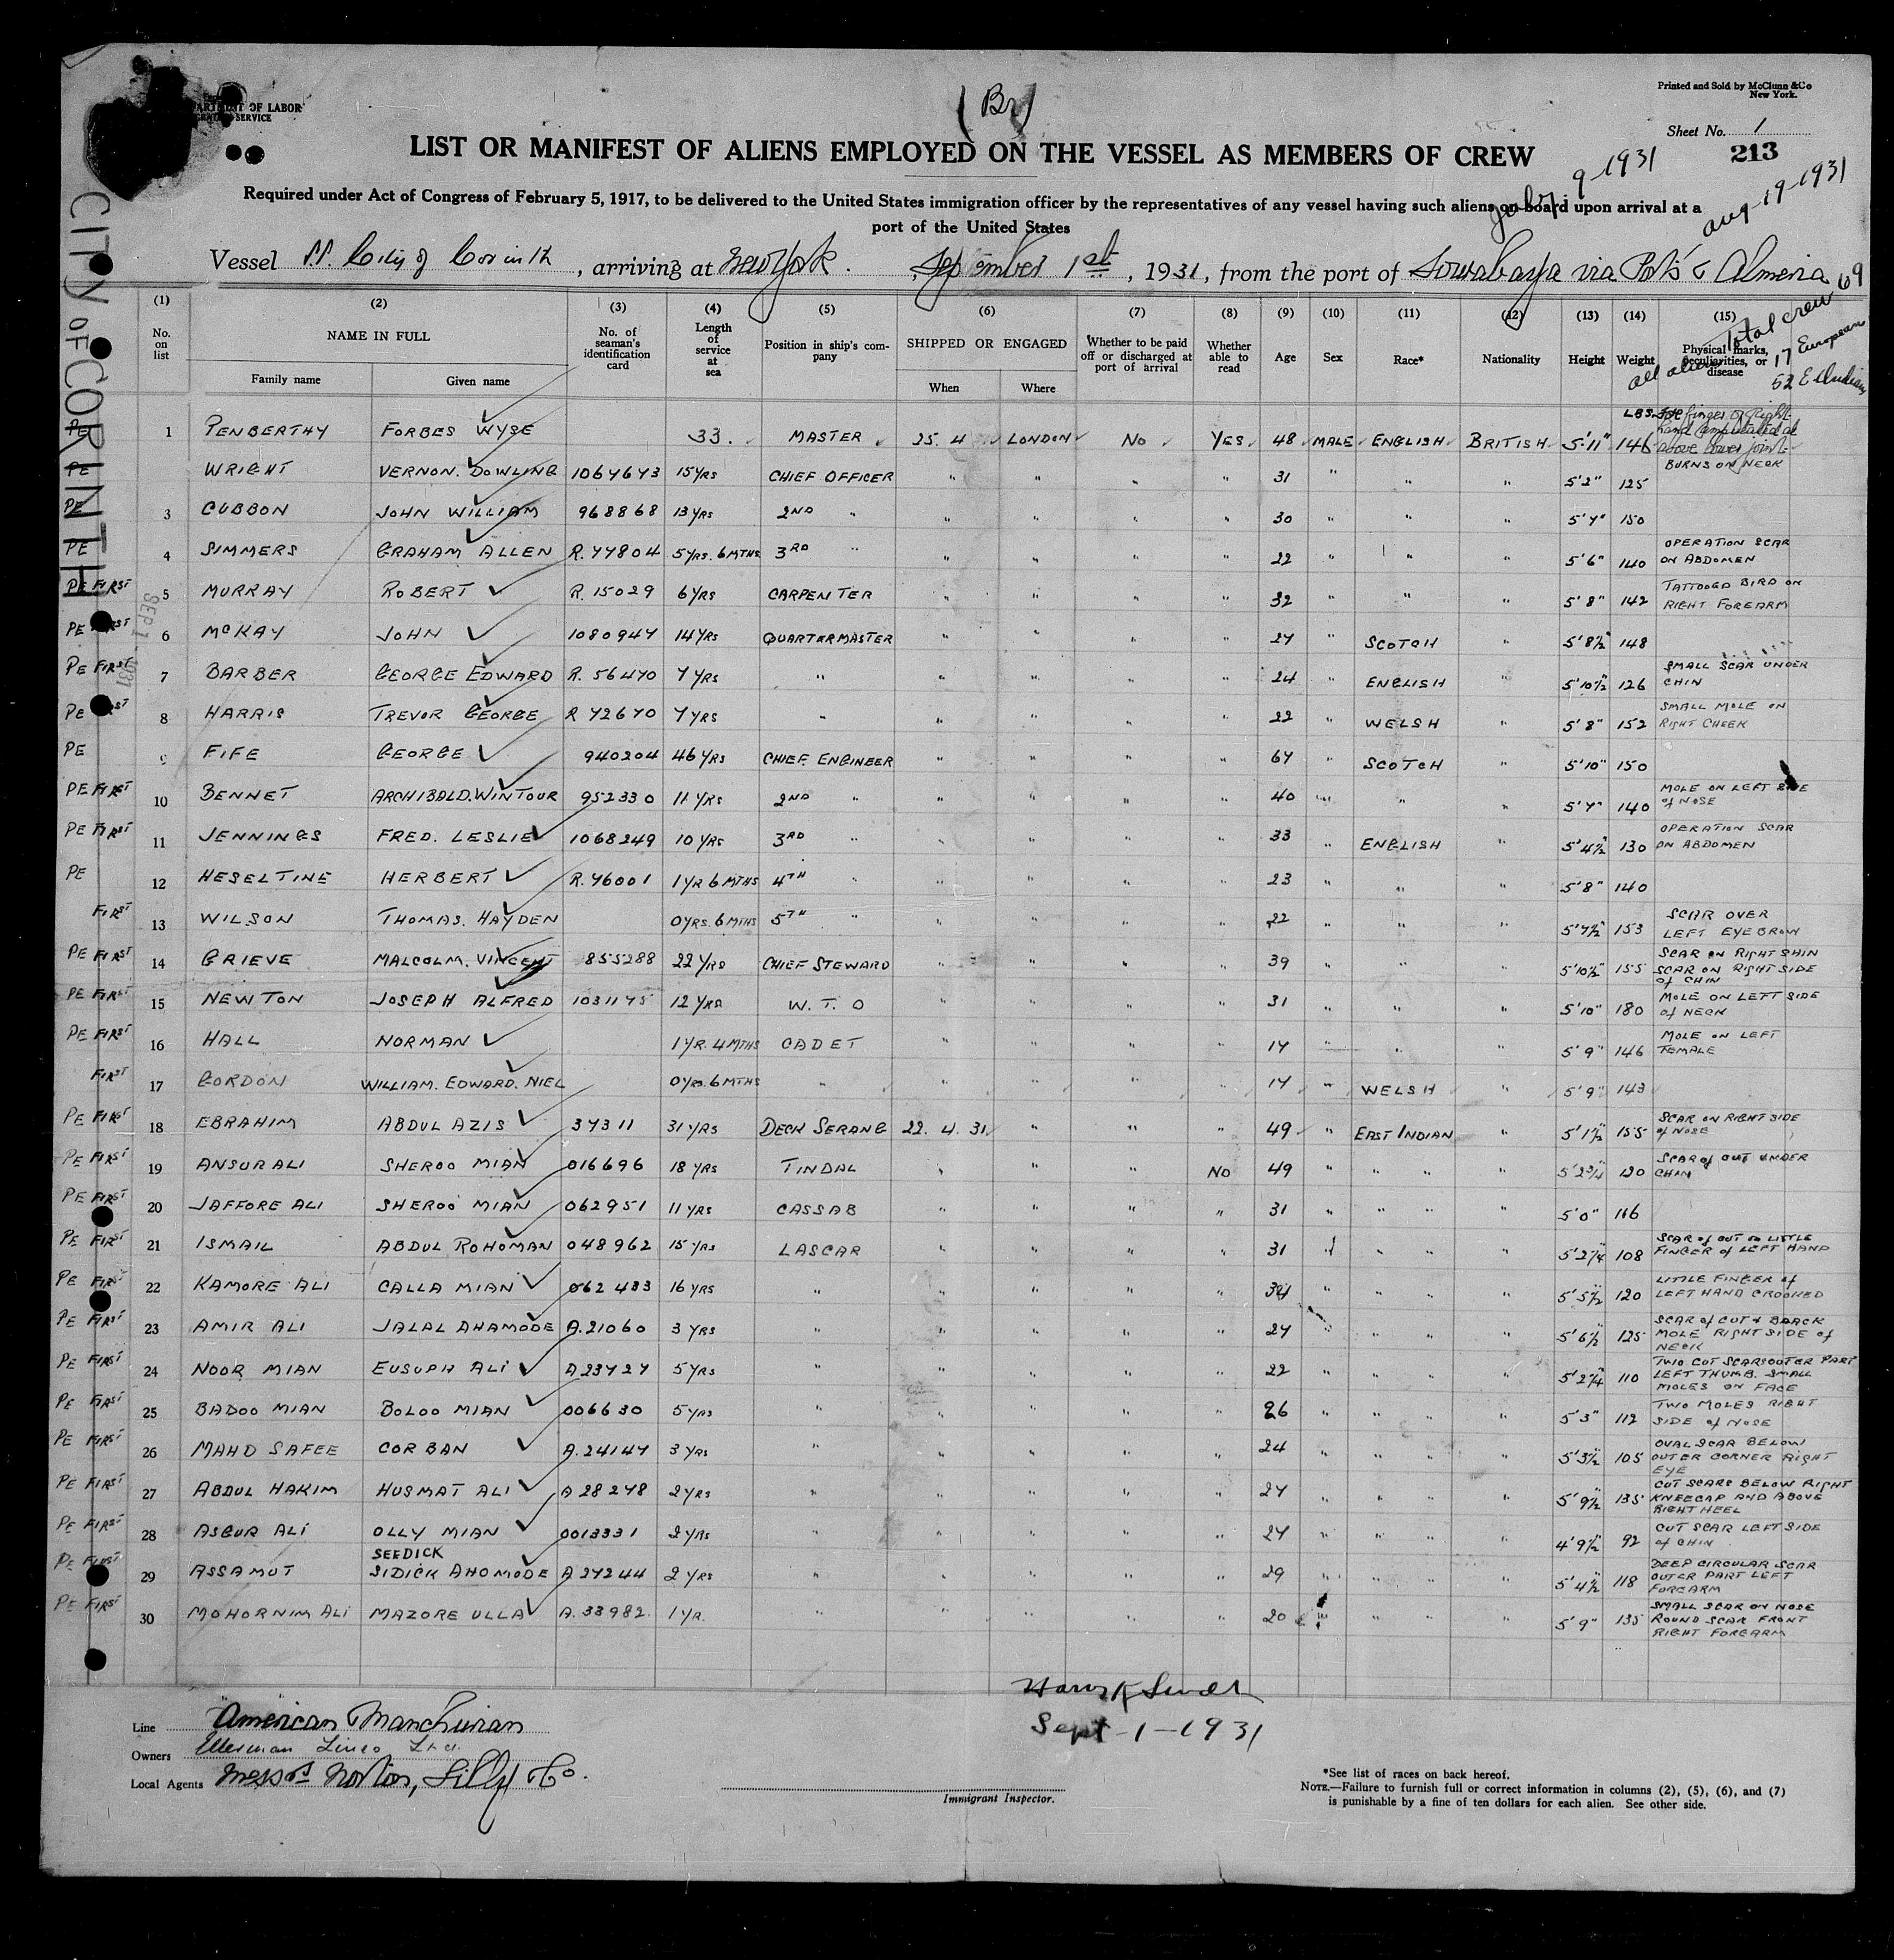 (Br)
Printed and Sold by McClunn & Co
New York.
DEPARTMENT OF LABOR
IMMIGRATION SERVICE
Sheet No. 1
213
LIST OR MANIFEST OF ALIENS EMPLOYED ON THE VESSEL AS MEMBERS OF CREW
July 9-1931
Aug-19-1931
Required under Act of Congress of February 5, 1917, to be delivered to the United States immigration officer by the representatives of any vessel having such aliens on board upon arrival at a
port of the United States
Vessel S.S. City of Corinth, arriving at New York. September 1st, 1931, from the port of Sourabaya via Ports & Almeria
CITY OF CORINTH
SEP 1 1931
Total crew 69
17 European
52 E Indian
all aliens
(1) (2) (3) (4) (5) (6) (7) (8) (9) (10) (11) (12) (13) (14) (15)
No. on list NAME IN FULL No. of seaman's identification card Length of service at sea Position in ship's company SHIPPED OR ENGAGED Whether to be paid off or discharged at port of arrival Whether able to read Age Sex Race* Nationality Height Weight Physical marks, peculiarities, or disease
Family name Given name When Where
PE 1 PENBERTHY FORBES WYSE 33. MASTER 25.4 LONDON NO YES 48 MALE ENGLISH BRITISH 5'11" 146 LBS. finger of Right hand amputated above lower joint
PE WRIGHT VERNON. DOWLING 1067673 15 YRS CHIEF OFFICER " " " " 31 " " " 5'2" 125 BURNS ON NECK
PE 3 CUBBON JOHN WILLIAM 968868 13 YRS 2ND " " " " " 30 " " " 5'7" 150
PE 4 SIMMERS GRAHAM ALLEN R.77804 5 YRS. 6 MTHS 3RD " " " " " 22 " " " 5'6" 140 OPERATION SCAR ON ABDOMEN
PE FIRST 5 MURRAY ROBERT R. 15029 6 YRS CARPENTER " " " " 32 " " " 5'8" 142 TATTOOED BIRD ON RIGHT FOREARM
PE FIRST 6 McKAY JOHN 1080947 14 YRS QUARTERMASTER " " " " 27 " SCOTCH " 5'8½" 148
PE FIRST 7 BARBER GEORGE EDWARD R. 56470 7 YRS " " " " " 24 " ENGLISH " 5'10½" 126 SMALL SCAR UNDER CHIN
PE FIRST 8 HARRIS TREVOR GEORGE R 72670 7 YRS " " " " " 22 " WELSH " 5'8" 152 SMALL MOLE ON RIGHT CHEEK
PE 9 FIFE GEORGE 940204 46 YRS CHIEF ENGINEER " " " " 67 " SCOTCH " 5'10" 150
PE FIRST 10 BENNET ARCHIBALD. WINTOUR 952330 11 YRS 2ND " " " " " 40 " " " 5'7" 140 MOLE ON LEFT SIDE of NOSE
PE FIRST 11 JENNINGS FRED. LESLIE 1068249 10 YRS 3RD " " " " " 33 " ENGLISH " 5'4½" 130 OPERATION SCAR ON ABDOMEN
PE 12 HESELTINE HERBERT R. 76001 1 YR 6 MTHS 4TH " " " " " 23 " " " 5'8" 140
FIRST 13 WILSON THOMAS. HAYDEN 0 YRS. 6 MTHS 5TH " " " " " 22 " " " 5'7½" 153 SCAR OVER LEFT EYEBROW
PE FIRST 14 GRIEVE MALCOLM. VINCENT 855288 22 YRS CHIEF STEWARD " " " " 39 " " " 5'10½" 155 SCAR ON RIGHT SHIN SCAR ON RIGHT SIDE of CHIN
PE FIRST 15 NEWTON JOSEPH ALFRED 1031175 12 YRS W. T. O " " " " 31 " " " 5'10" 180 MOLE ON LEFT SIDE of NECK
PE FIRST 16 HALL NORMAN 1 YR. 4 MTHS CADET " " " " 17 " " " 5'9" 146 MOLE ON LEFT FEMALE
FIRST 17 GORDON WILLIAM. EDWARD. NIEL 0 YRS. 6 MTHS " " " " " 17 " WELSH " 5'9" 143
PE FIRST 18 EBRAHIM ABDUL AZIS 37311 31 YRS DECK SERANG 22. 4. 31 " " " 49 " EAST INDIAN " 5'1½" 155 SCAR ON RIGHT SIDE of NOSE
PE FIRST 19 ANSUR ALI SHEROO MIAN 016696 18 YRS TINDAL " " " NO 49 " " " " 5'2¾" 120 SCAR of CUT UNDER CHIN
PE FIRST 20 JAFFORE ALI SHEROO MIAN 062951 11 YRS CASSAB " " " " 31 " " " " 5'0" 116
PE FIRST 21 ISMAIL ABDUL ROHOMAN 048962 15 YRS LASCAR " " " " 31 " " " " 5'2¼" 108 SCAR of CUT ON LITTLE FINGER of LEFT HAND
PE FIRST 22 KAMORE ALI CALLA MIAN 062433 16 YRS " " " " " 34 " " " " 5'5½" 120 LITTLE FINGER of LEFT HAND CROOKED
PE FIRST 23 AMIR ALI JALAL AHAMODE A.21060 3 YRS " " " " " 27 " " " " 5'6½" 125 SCAR of CUT & BLACK MOLE RIGHT SIDE of NECK
PE FIRST 24 NOOR MIAN EUSUPH ALI A 23727 5 YRS " " " " " 22 " " " " 5'2¼" 110 TWO CUT SCARS OUTER PART LEFT THUMB. SMALL MOLES ON FACE
PE FIRST 25 BADOO MIAN BOLOO MIAN 006630 5 YRS " " " " " 26 " " " " 5'3" 112 TWO MOLES RIGHT SIDE of NOSE
PE FIRST 26 MAHD SAFEE CORBAN A. 24147 3 YRS " " " " " 24 " " " " 5'3½" 105 OVAL SCAR BELOW OUTER CORNER RIGHT EYE
PE FIRST 27 ABDUL HAKIM HUSMAT ALI A 28278 2 YRS " " " " " 27 " " " " 5'9½" 135 CUT SCARS BELOW RIGHT KNEECAP AND ABOVE RIGHT HEEL
PE FIRST 28 ASGUR ALI OLLY MIAN 0013331 2 YRS " " " " " 27 " " " " 4'9½" 92 CUT SCAR LEFT SIDE of CHIN
PE FIRST 29 ASSAMUT SEEDICK SIDICK AHOMODE A 27244 2 YRS " " " " " 29 " " " " 5'4½" 118 DEEP CIRCULAR SCAR OUTER PART LEFT FOREARM
PE FIRST 30 MOHORNIM ALI MAZORE ULLA A. 33982 1 YR. " " " " " 20 " " " " 5'9" 135 SMALL SCAR ON NOSE ROUND SCAR FRONT RIGHT FOREARM
Line "American Manchurian
Owners Ellerman Lines Ltd.
Local Agents Messrs Norton, Lilly & Co.
Sept-1-1931
Immigrant Inspector.
*See list of races on back hereof.
NOTE.—Failure to furnish full or correct information in columns (2), (5), (6), and (7)
is punishable by a fine of ten dollars for each alien. See other side.